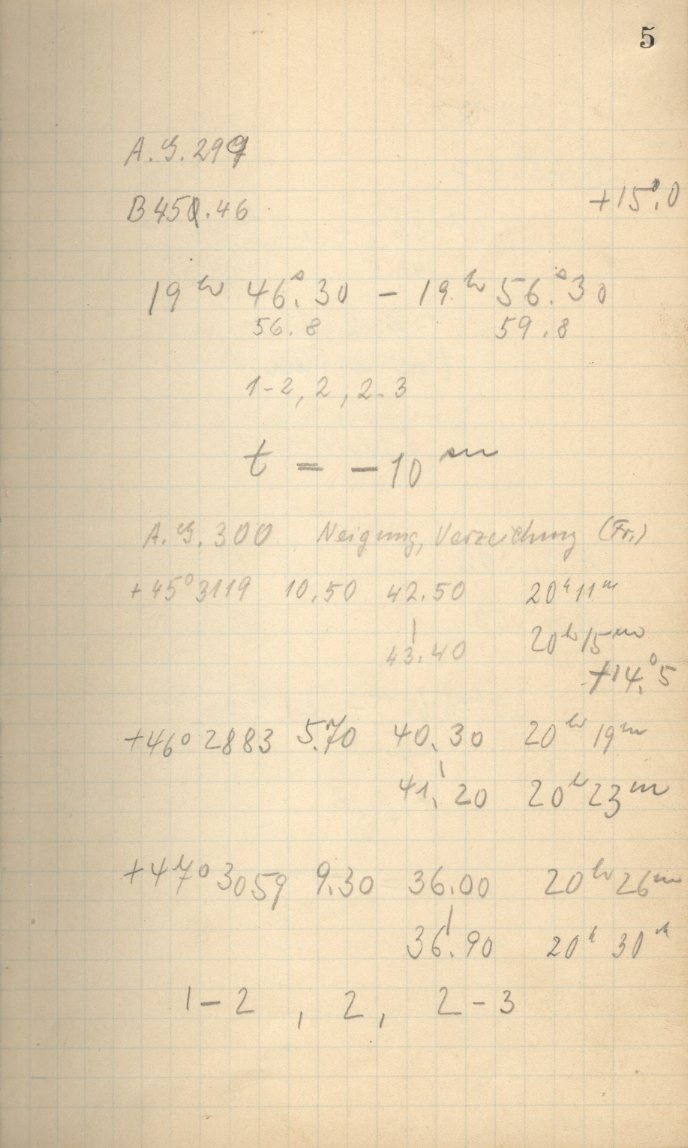 5
A.G. 299
B 450.46 +15°.0
19h 46.s30 – 19h 56.s30
56.8 59.8
1-2, 2, 2-3
t = –10m
A.G. 300 Neigung, Verzeichnung (Fr.)
+45° 3119 10.50 42.50 20h 11m
43.40 20h 15m
+14.°5
+46° 2883 5.70 40.30 20h 19m
41.20 20h 23m
+47° 3059 9.30 36.00 20h 26m
36.90 20h 30m
1–2, 2, 2–3